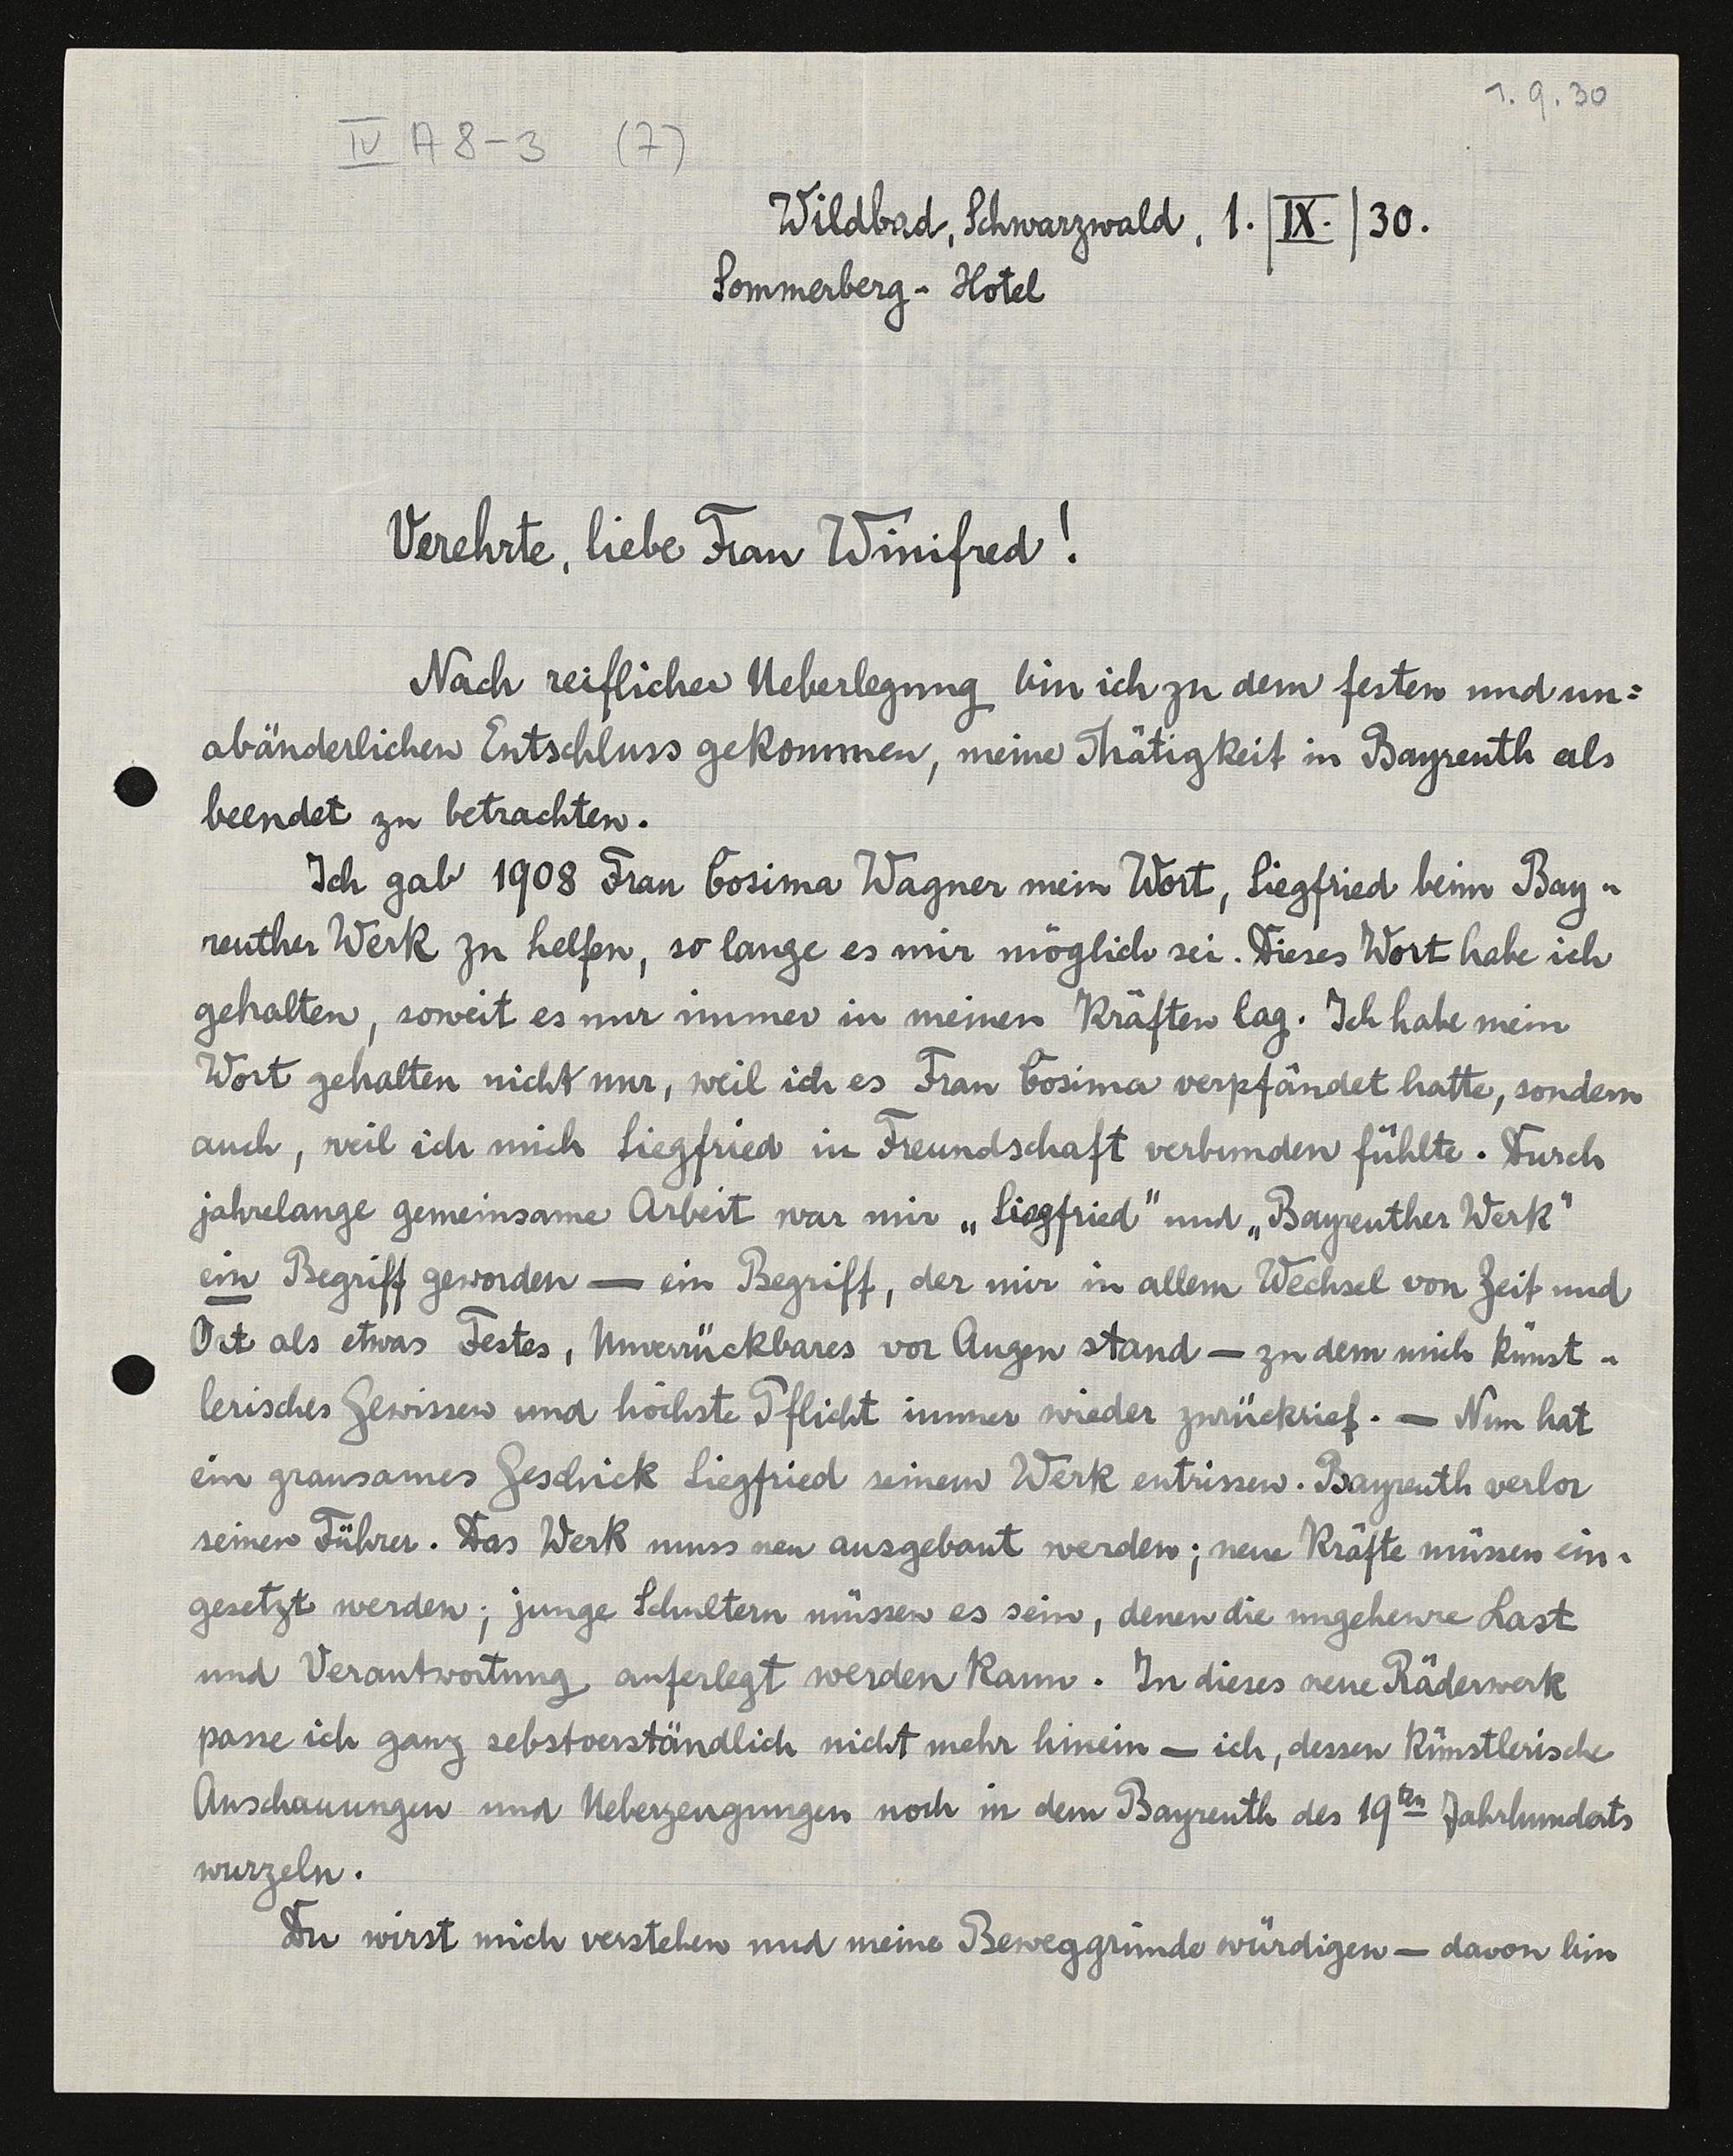 1. 9. 30
IV A 8-3 (7)
Wildbad, Schwarzwald, 1. | IX. | 30.
Sommerberg-Hotel
Verehrte, liebe Frau Winifred!
Nach reiflicher Ueberlegung bin ich zu dem festen und un=
abänderlichen Entschluss gekommen, meine Thätigkeit in Bayreuth als
beendet zu betrachten.
Ich gab 1908 Frau Cosima Wagner mein Wort, Siegfried beim Bay-
reuther Werk zu helfen, so lange es mir möglich sei. Dieses Wort habe ich
gehalten, soweit es nur immer in meinen Kräften lag. Ich habe mein
Wort gehalten nicht nur, weil ich es Frau Cosima verpfändet hatte, sondern
auch, weil ich mich Siegfried in Freundschaft verbunden fühlte. Durch
jahrelange gemeinsame Arbeit war mir „Siegfried" und „Bayreuther Werk"
ein Begriff geworden — ein Begriff, der mir in allem Wechsel von Zeit und
Ort als etwas Festes, Unverrückbares vor Augen stand — zu dem mich künst-
lerisches Gewissen und höchste Pflicht immer wieder zurückrief. — Nun hat
ein grausames Geschick Siegfried seinem Werk entrissen. Bayreuth verlor
seinen Führer. Das Werk muss neu ausgebaut werden; neue Kräfte müssen ein-
gesetzt werden; junge Schultern müssen es sein, denen die ungeheure Last
und Verantwortung auferlegt werden kann. In dieses neue Räderwerk
passe ich ganz sebstverständlich nicht mehr hinein — ich, dessen künstlerische
Anschauungen und Ueberzeugungen noch in dem Bayreuth des 19ten Jahrhunderts
wurzeln.
Du wirst mich verstehen und meine Beweggründe würdigen — davon bin